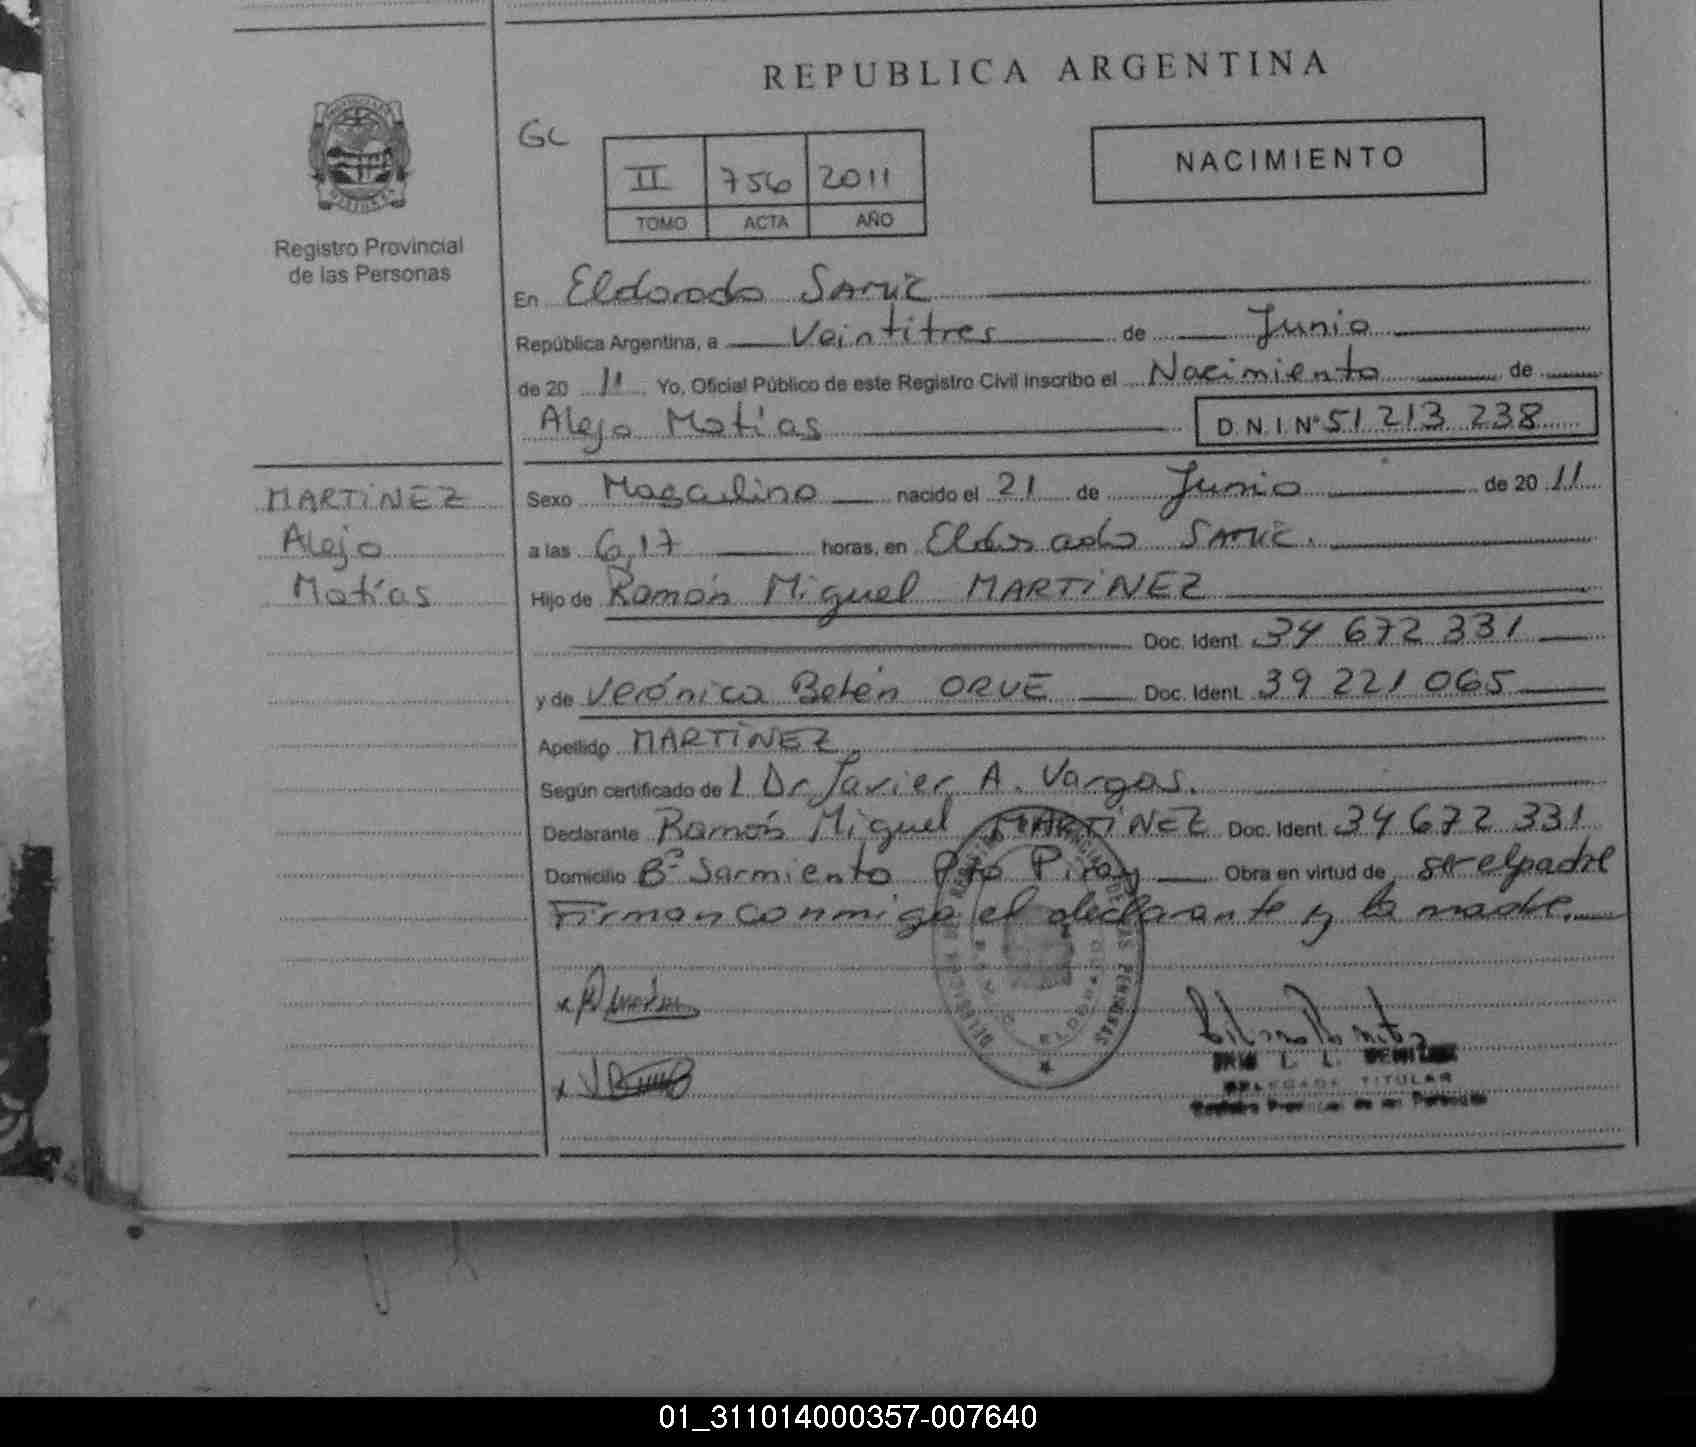 REPUBLICA ARGENTINA
GC
II 756 2011
TOMO ACTA AÑO
NACIMIENTO
Registro Provincial
de las Personas
En Eldorado
República Argentina, a Veintitres de Junio
de 20 11 Yo, Oficial Público de este Registro Civil inscribo el Nacimiento de
Alejo Matías D.N.I.Nº 51 213 238
MARTiNEZ
Alejo
Matías
Sexo Masculino nacido el 21 de Junio de 20 11
a las 6,17 horas, en Eldorado
Hijo de Ramón Miguel MARTiNEZ
Doc. Ident. 34 672 331
y de Verónica Belén ORUE Doc. Ident. 39 221 065
Apellido MARTiNEZ.
Según certificado de l Dr Javier A. Vargas.
Declarante Ramón Miguel MARTiNEZ Doc. Ident. 34 672 331
Domicilio Bº Sarmiento Pto Piray Obra en virtud de ser el padre
Firman conmigo el declarante y la madre.
DELEGADA TITULAR
01_311014000357-007640